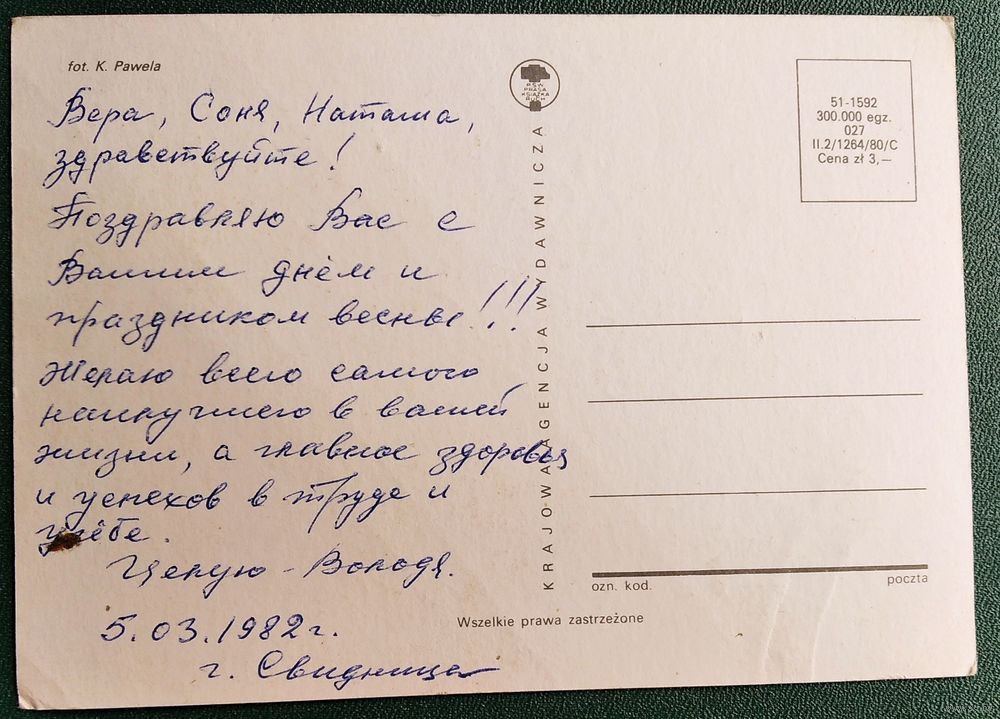 fot. K. Pawela
Вера, Соня, Наташа,
здравствуйте!
Поздравляю Вас с
Вашим днём и
праздником весны!!!
Желаю всего самого
наилучшего в вашей
жизни, а главное здоровья
и успехов в труде и
учёбе.
Целую - Володя.
5.03.1982г.
г. Свидница
RSW
PRASA
KSIĄŻKA
RUCH
KRAJOWA AGENCJA WYDAWNICZA
51-1592
300.000 egz.
027
II.2/1264/80/C
Cena zł 3,—
ozn. kod.
poczta
Wszelkie prawa zastrzeżone